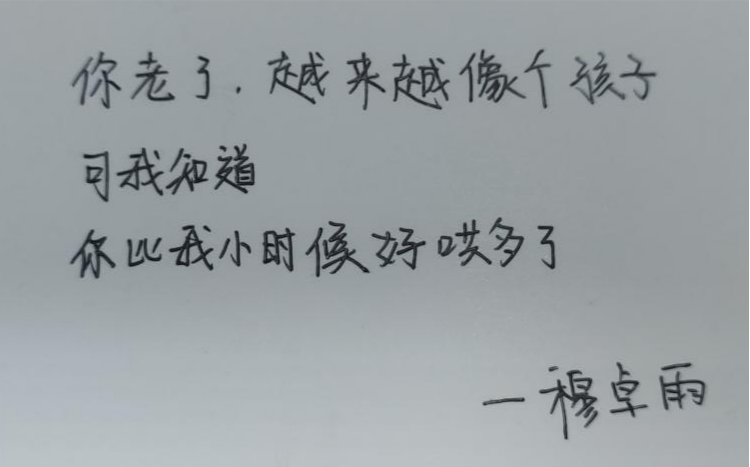 你老了，越来越像个孩子
可我知道
你比我小时候好哄多了
—穆卓雨